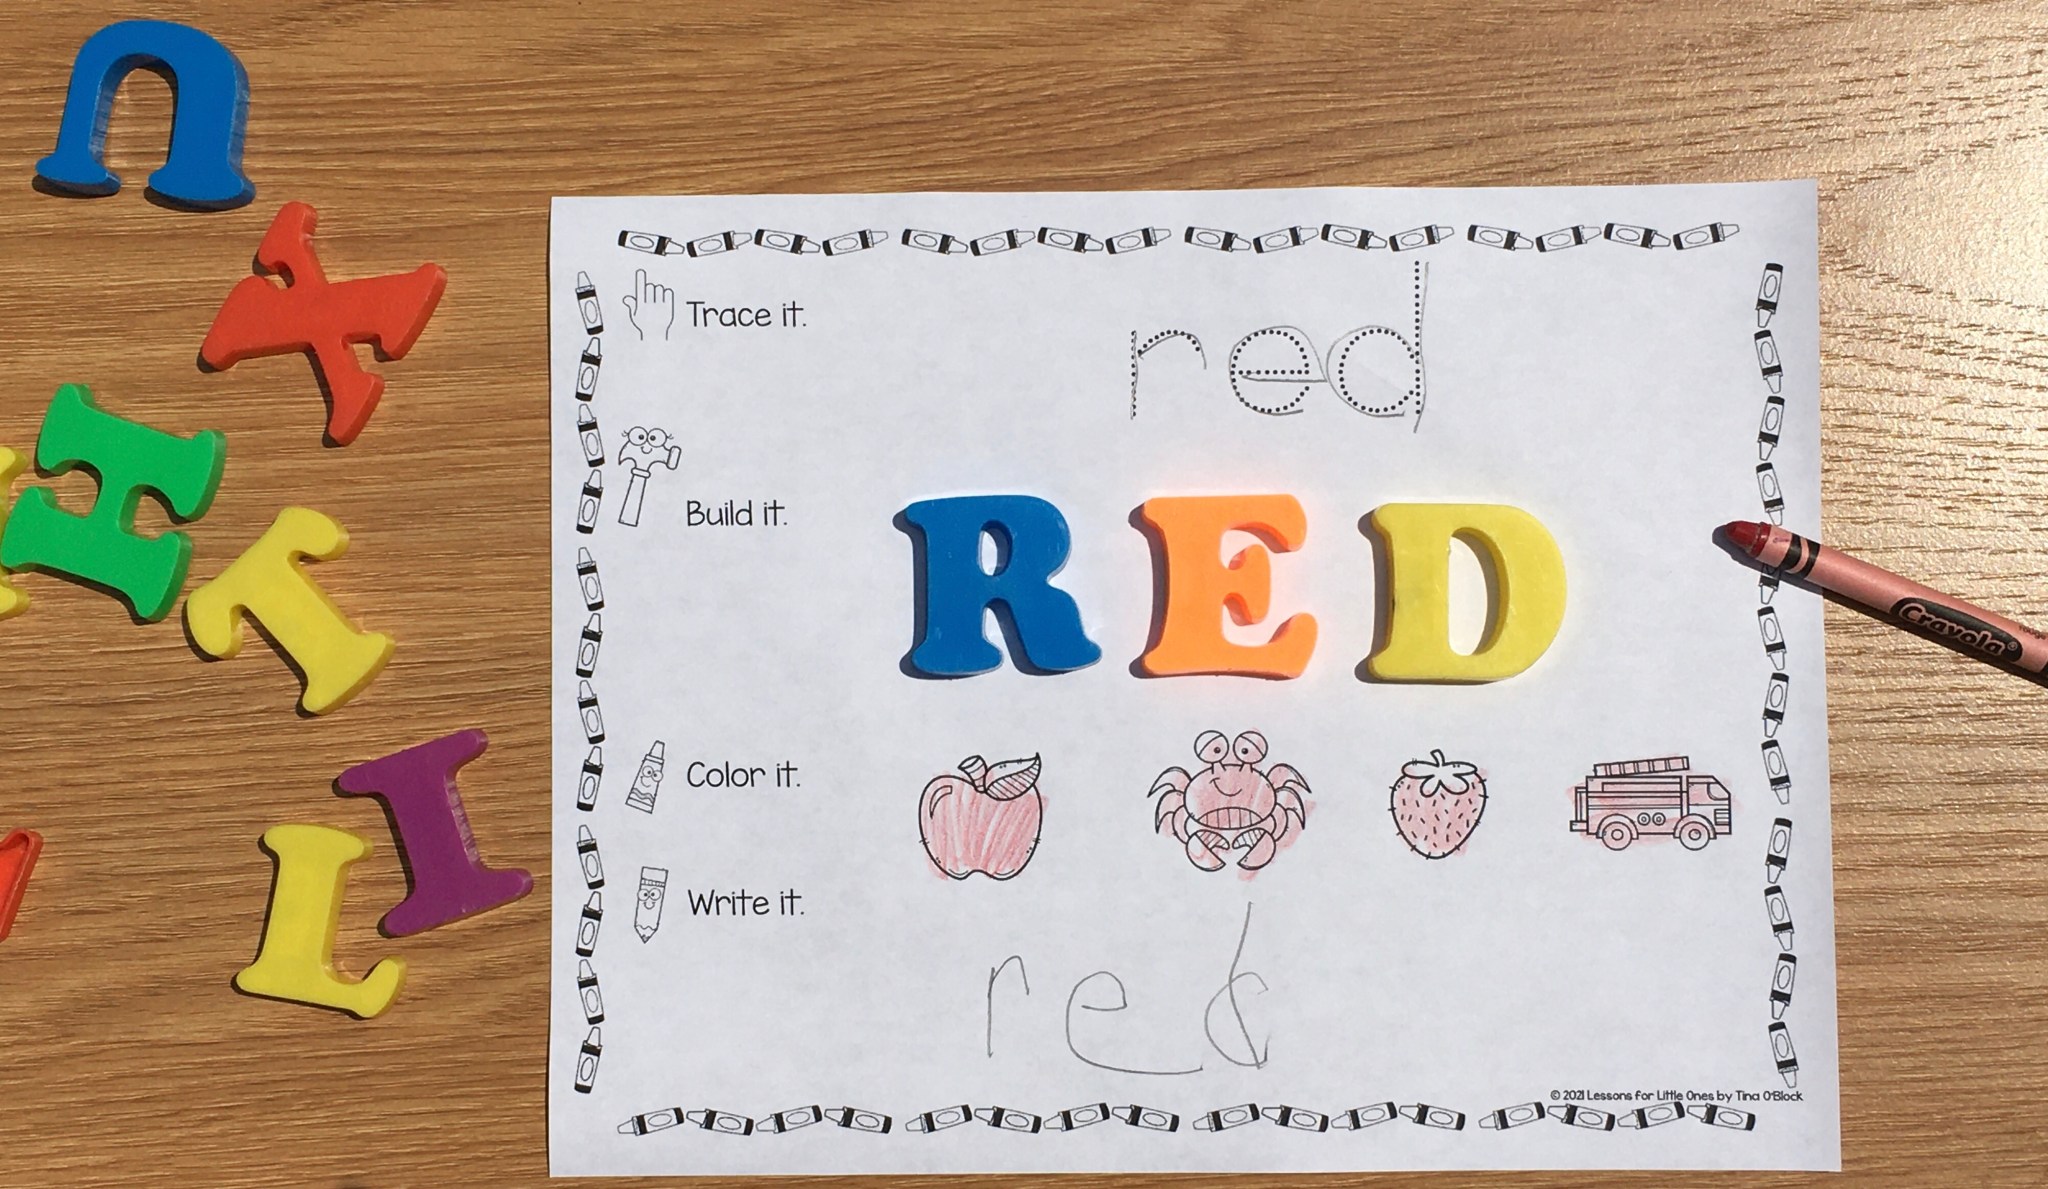 Trace it.
red
Build it.
RED
Color it.
Write it.
red
© 2021 Lessons for Little Ones by Tina O'Block
Crayola®
U
X
H
T
I
L